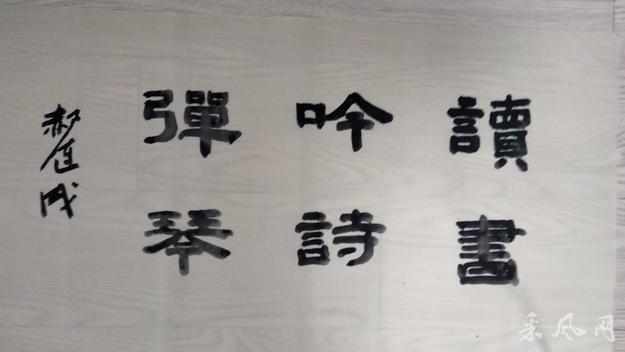 讀書
吟詩
彈琴
郝直成
采风网